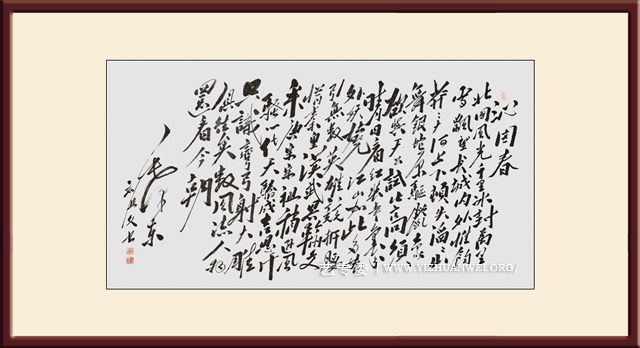 沁园春
北国风光千里冰封万里
雪飘望长城内外惟余
莽莽大河上下顿失滔滔山
舞银蛇原驰蜡象
欲与天公试比高须
晴日看红装素裹分
外妖娆江山如此多娇
引无数英雄竞折腰
惜秦皇汉武略输文
采唐宗宋祖稍逊风
骚一代天骄成吉思汗
只识弯弓射大雕
俱往矣数风流人物
还看今朝
毛泽东
艺专委 | WWW.YIZHUANWEI.ORG/